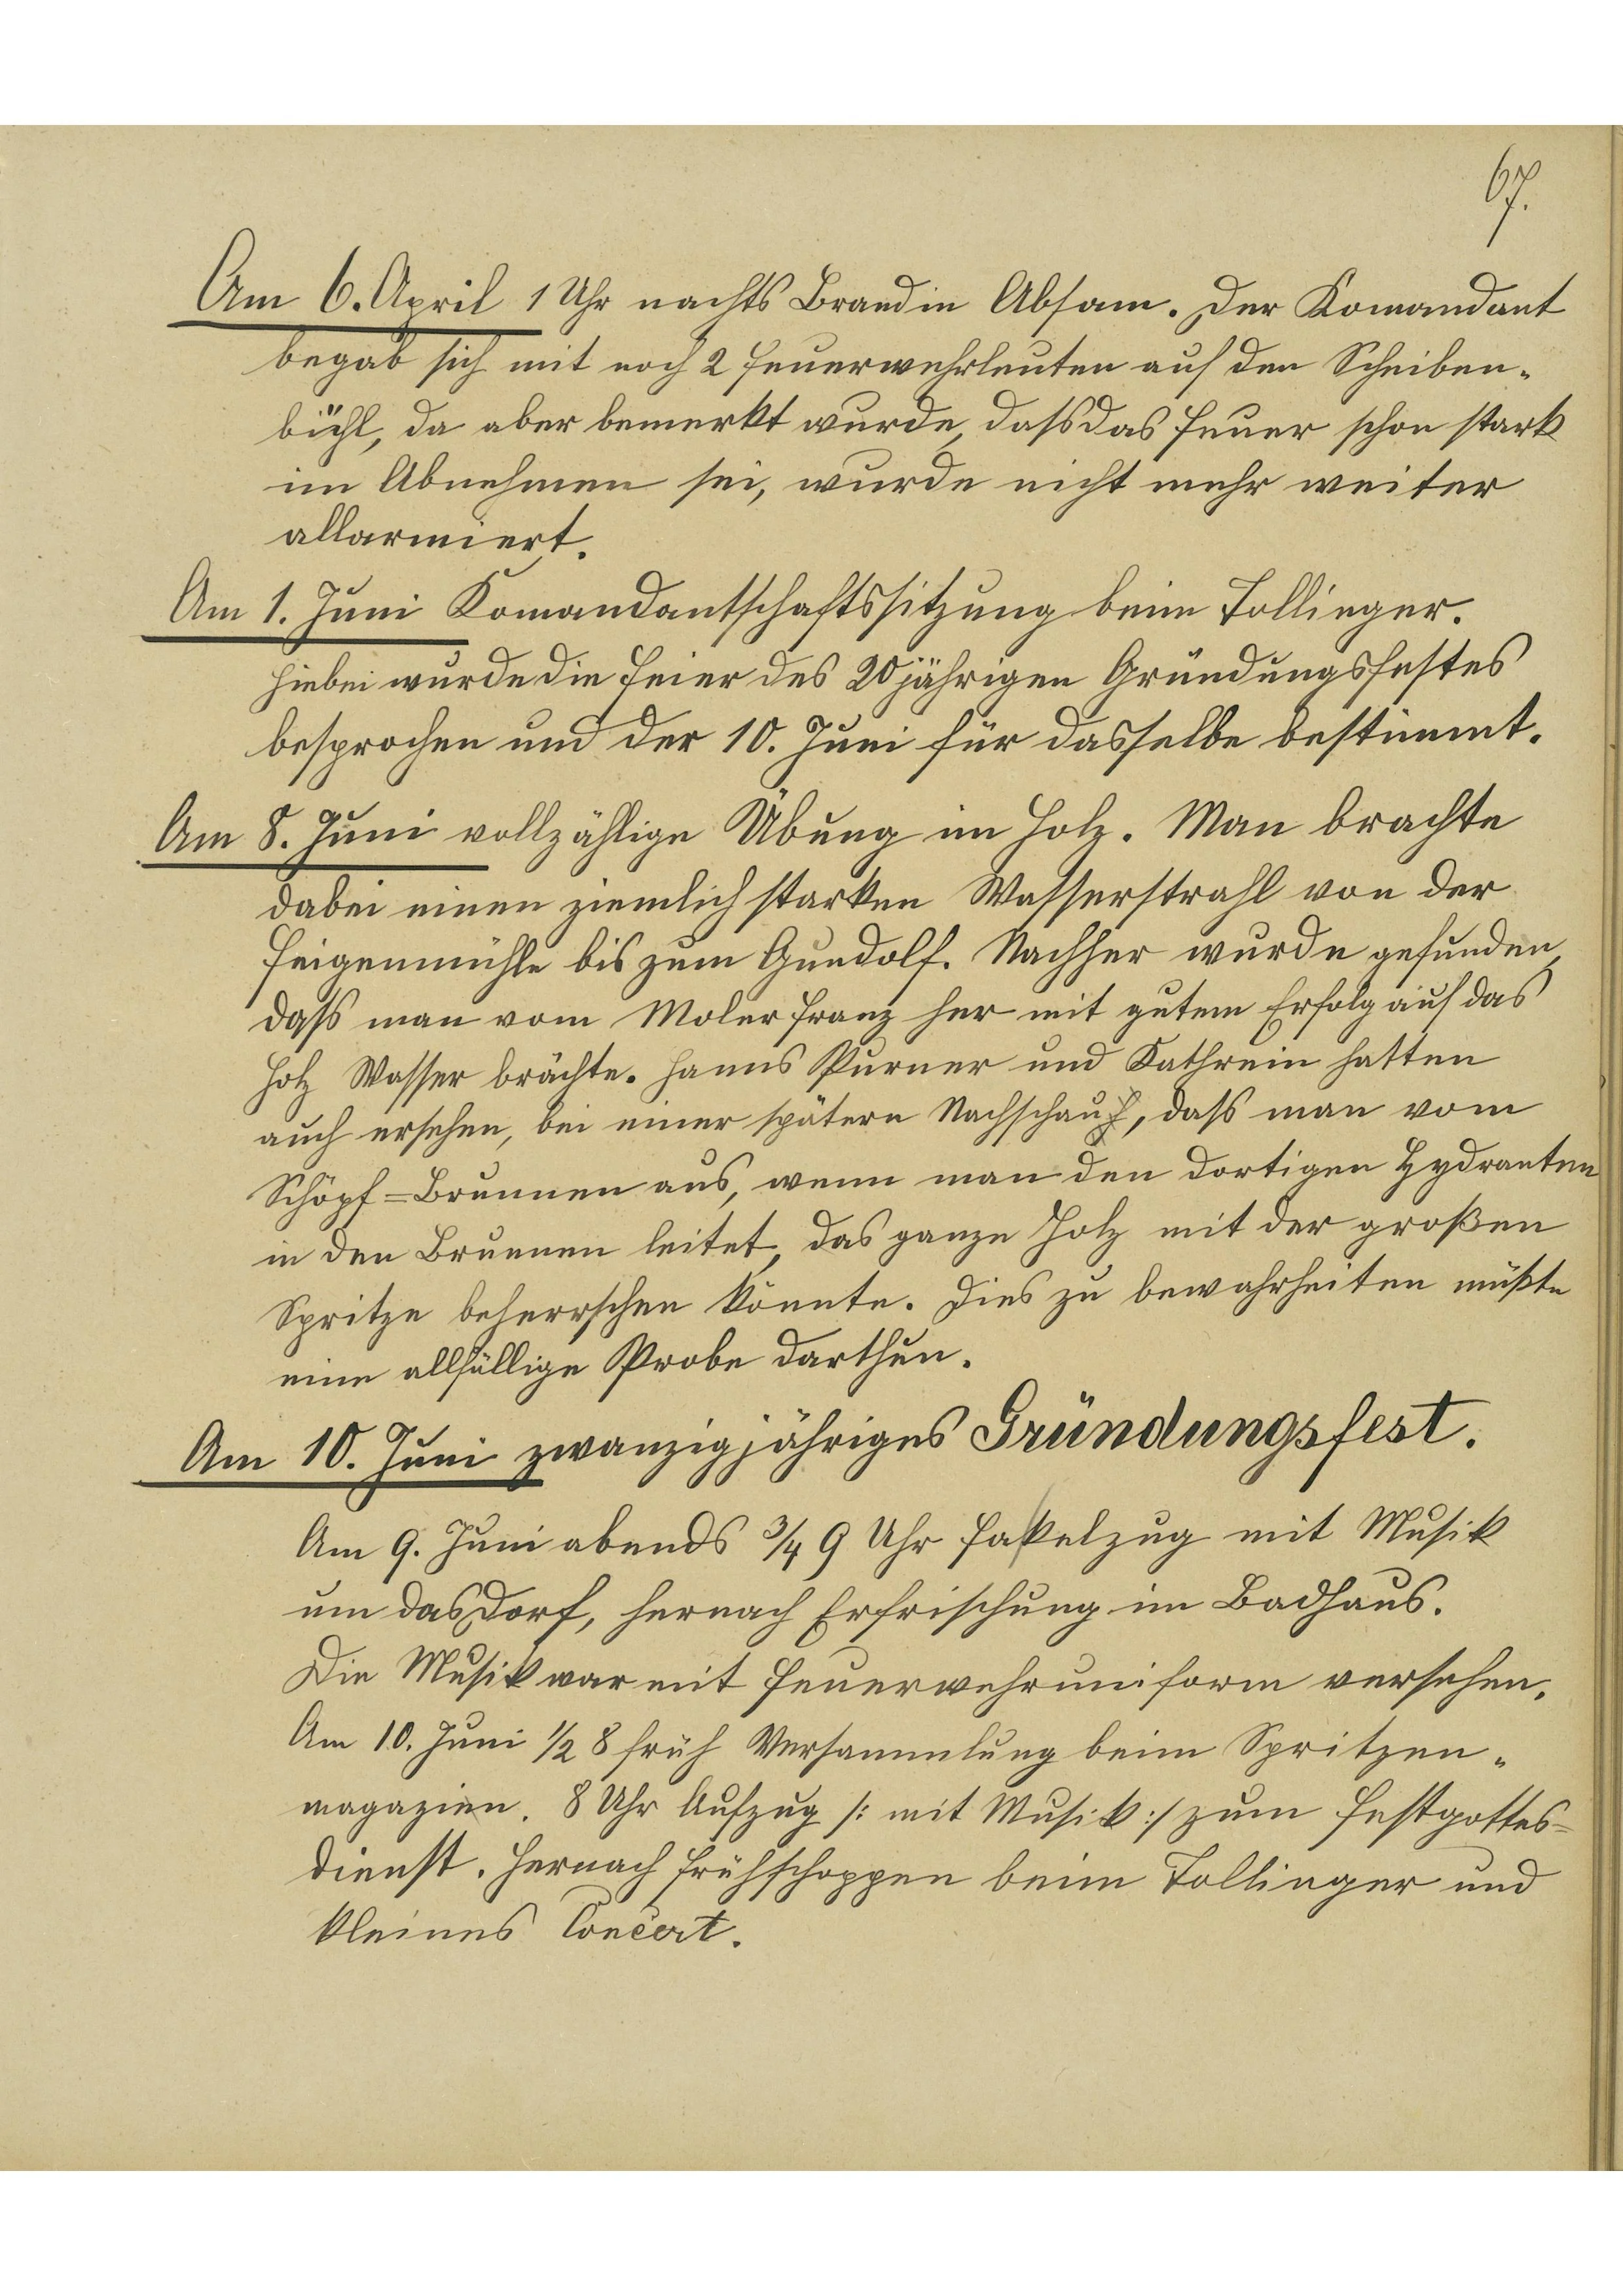 67.
Am 6. April 1 Uhr nachts Brand in Absam. Der Komandant
begab sich mit noch 2 Feuerwehrleuten auf den Scheiben-
bühl, da aber bemerkt wurde, dass das Feuer schon stark
im Abnehmen sei, wurde nicht mehr weiter
allarmiert.
Am 1. Juni Komandantschaftssitzung beim Tollinger.
Hiebei wurde die Feier des 20jährigen Gründungsfestes
besprochen und der 10. Juni für dasselbe bestimmt.
Am 8. Juni vollzählige Übung im Holz. Man brachte
dabei einen ziemlich starken Wasserstrahl von der
Feigenmühle bis zum Gundolf. Nachher wurde gefunden,
dass man vom Moler Franz her mit gutem Erfolg auf das
Holz Wasser brächte. Hanns Purner und Kathrein hatten
auch ersehen, bei einer spätern Nachschau, dass man vom
Schöpf=Brunnen aus, wenn man den dortigen Hydranten
in den Brunnen leitet, das ganze Holz mit der großen
Spritze beherrschen könnte. Dies zu bewahrheiten müßte
eine allfällige Probe darthun.
Am 10. Juni zwanzigjähriges Gründungsfest.
Am 9. Juni abends 3/4 9 Uhr Fakelzug mit Musik
um das Dorf, hernach Erfrischung im Badhaus.
Die Musik war mit Feuerwehruniform versehen.
Am 10. Juni 1/2 8 früh Versammlung beim Spritzen-
magazien. 8 Uhr Aufzug /: mit Musik :/ zum Festgottes-
dienst. Hernach Frühschoppen beim Tollinger und
kleines Concert.